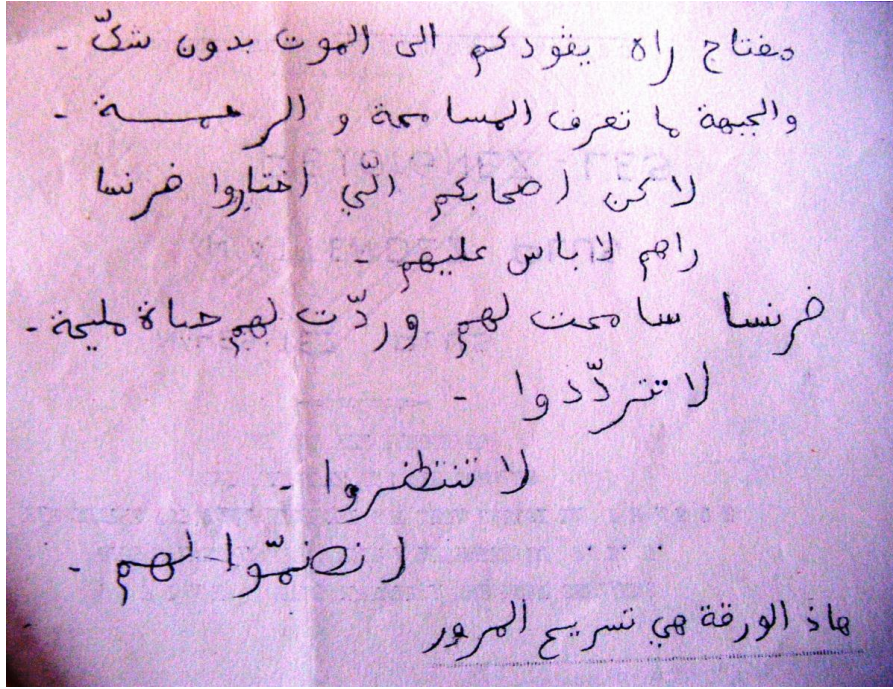 مفتاح راه يقودكم الى الموت بدون شكّ -
والجبهة ما تعرف المسامحة و الرحمـــة -
لاكن اصحابكم الّي اختاروا فرنسا
راهم لاباس عليهم -
فرنسا سامحت لهم وردّت لهم حياة مليحة -
لا تتردّدوا -
لا تنتظروا -
انضمّوا لهم -
هاذ الورقة هي تسريح المرور